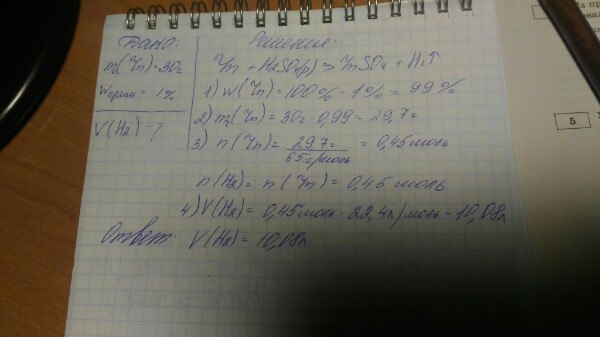 Дано:
m(Zn)=30г
wприм = 1%
V(H2)-?
Решение:
Zn + H2SO4(р) => ZnSO4 + H2↑
1) w(Zn)=100% - 1% = 99%
2) m(Zn)=30г · 0,99 = 29,7г
3) n(Zn)= 29,7г / 65г/моль = 0,45моль
n(H2)= n(Zn)= 0,45 моль
4) V(H2)= 0,45моль · 22,4л/моль = 10,08л
Ответ: V(H2)= 10,08л
5